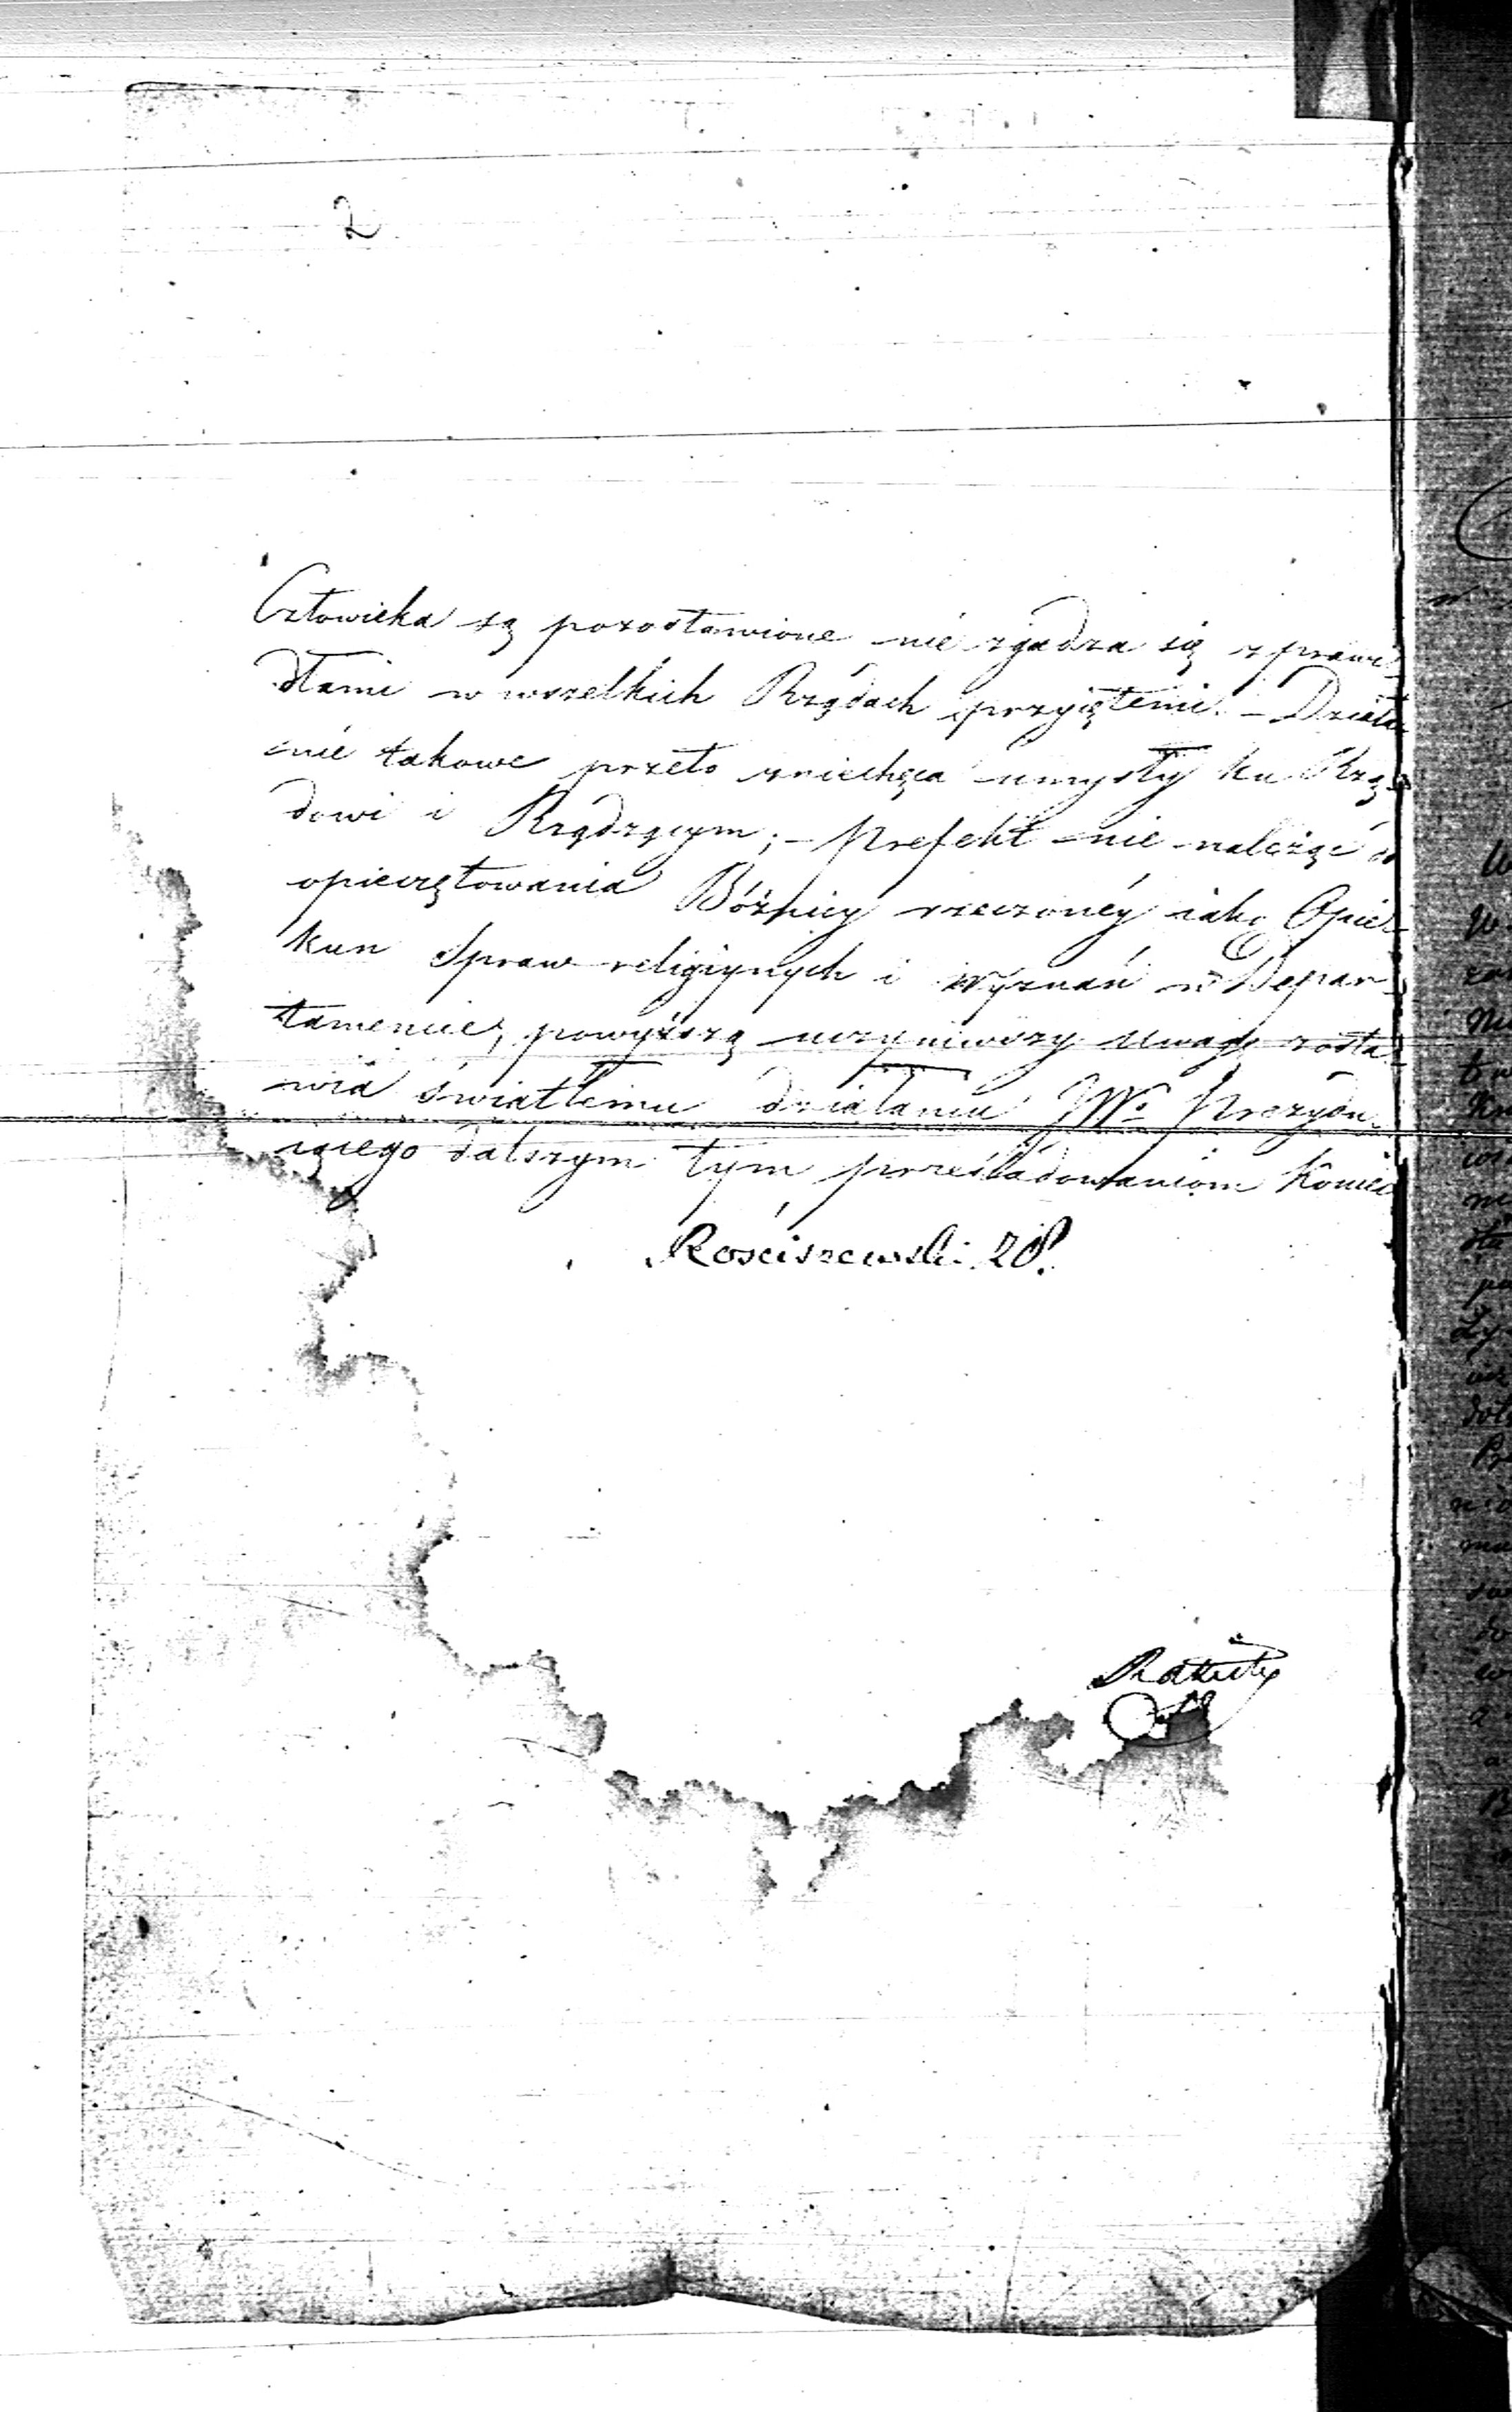 2
Człowieka są pozostawione nie zgadza się z prawi
dłami w wszelkich Rządach przyiętemi. – Działa
nie takowe przeto zniechęca umysły ku Rzą-
dowi i Rządzącym; – Prefekt nie należąc do
opieczętowania Bóżnicy rzeczonéy iako Opie-
kun Spraw religiynych i wyznań w Depar-
tamencie, powyższą uczyniwszy uwagę zosta
wia światłemu działaniu JW. Prezydu
iącego dalszym tym prześladowaniom koniec
Rościszewski